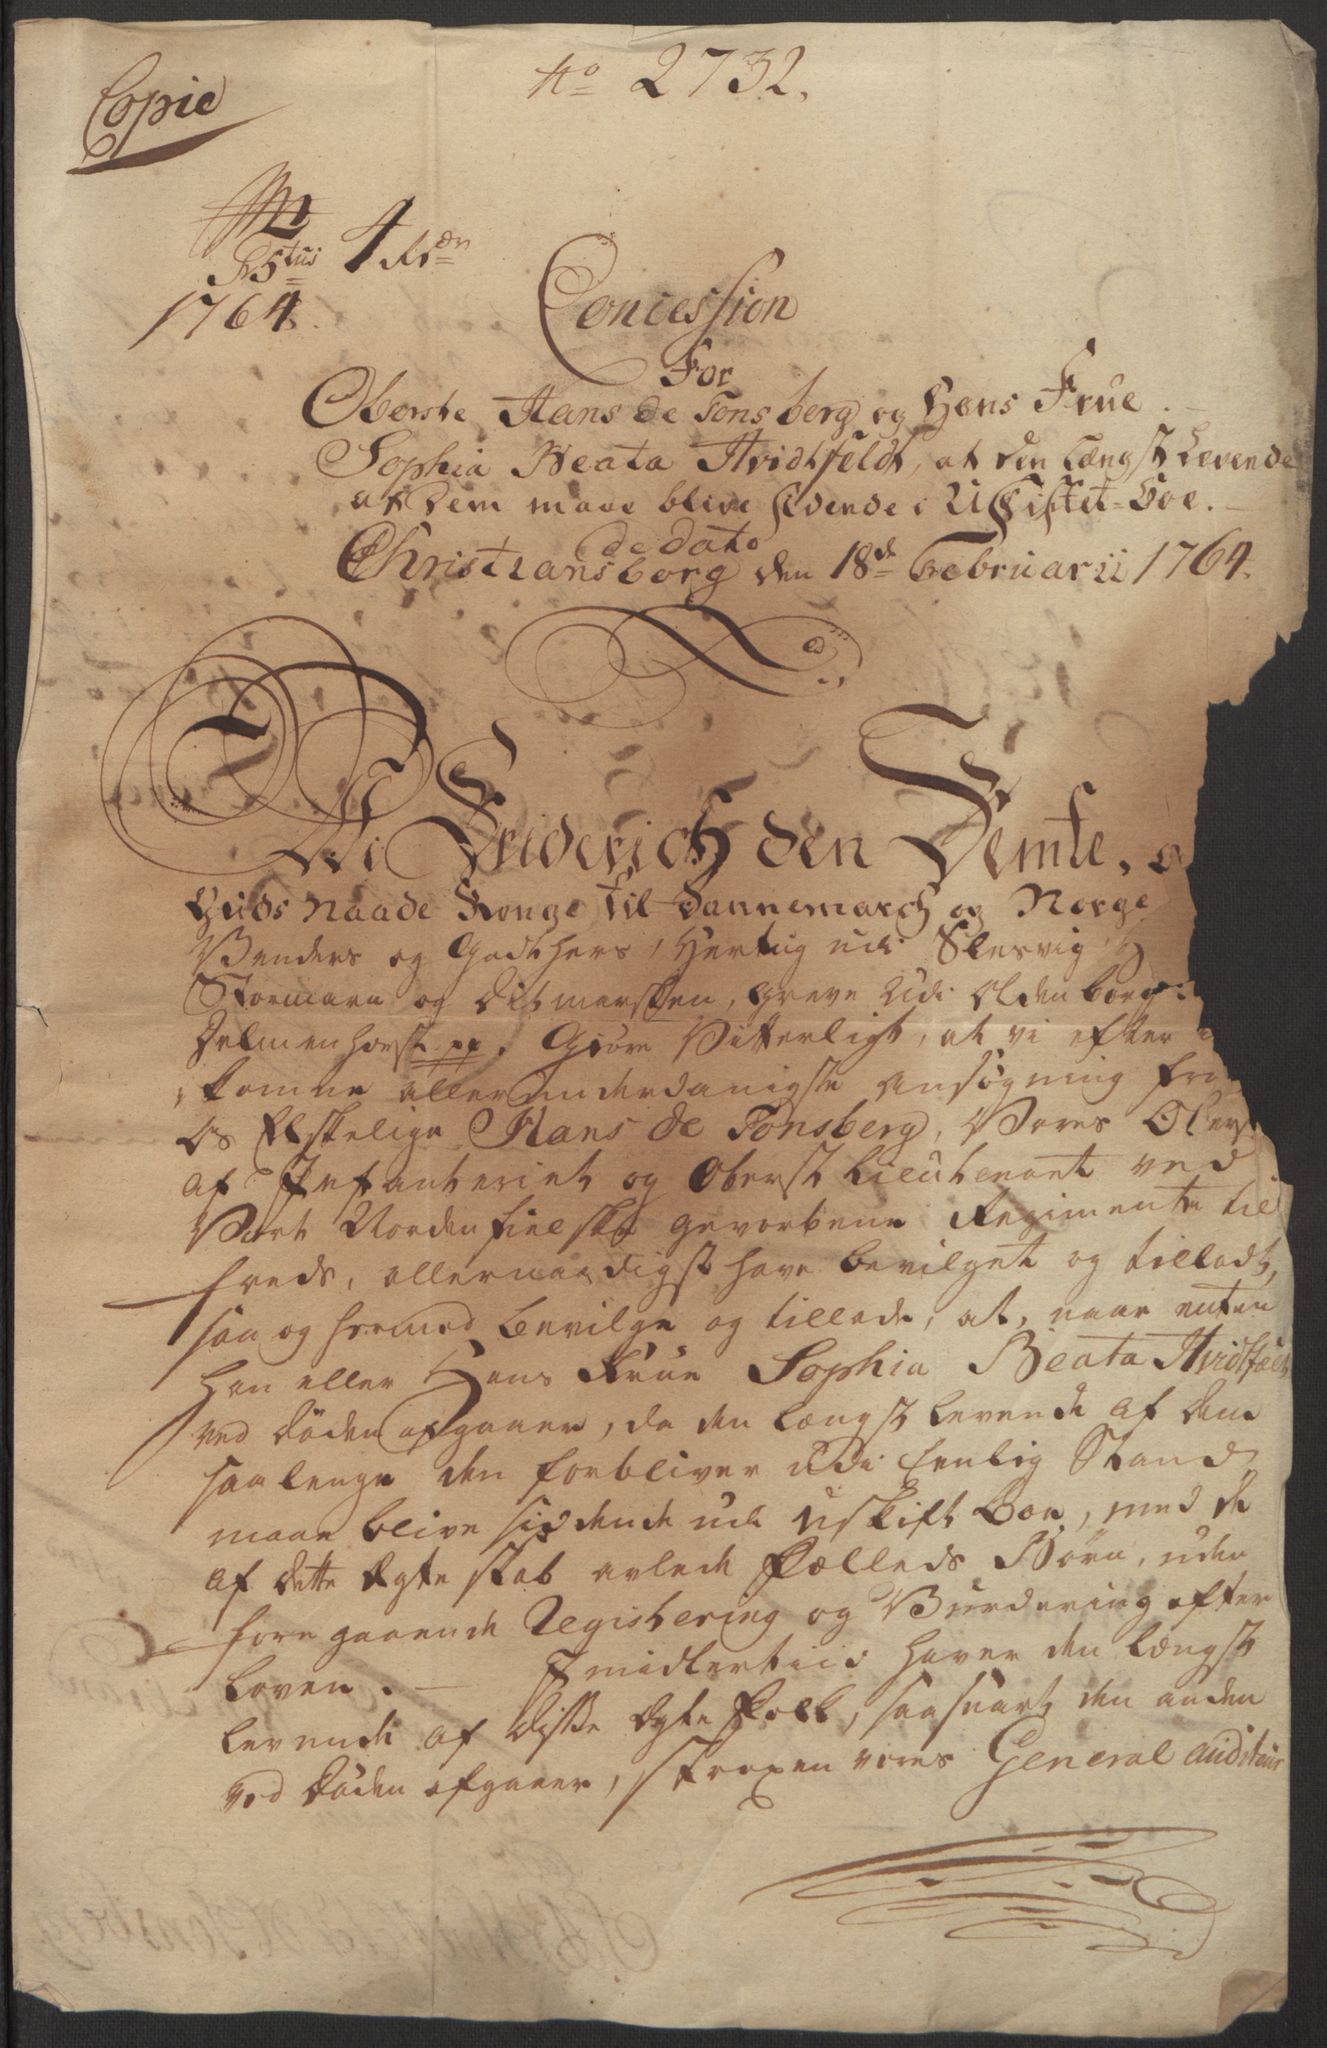 No 2732.
Copie
4 Rdr
1764.
Concession
For
Oberste Hans de Tonsberg og Hans Frue
Sophia Beata Hvidtfeldt, at den Længst Levende
af Dem maae blive sidende i Uskiftet-Boe.
de dato
Christiansborg den 18de Februarii 1764.
Wi Friderich den Femte, 
Guds Naade Konge til Dannemarch og Norge
Venders og Gothers, Hertug udi Slesvig H
Stormarn og Ditmersken, Greve Udi Oldenborg
Delmenhorst pp. Giöre Vitterligt, at vi efter
komne allerunderdanigste Ansøgning fra
Os Elskelige Hans de Tonsberg, Vores Oberst
af Infanteriet og Oberst Lieutenant ved
Vort Nordenfielske gevorbene Regimente til
freds, allernaadigst have bevilget og tilladt,
saa og hermed bevilge og tillade, at, naar enten
han eller Hans Frue Sophia Beata Hvidtfeldt
ved Døden afgaaer, da den længst levende af dem
saalenge den forbliver udi Eenlig Stand,
maae blive siddende udi Uskift Boe, med de
af dette Egteskab avlede Fælleds Börn, uden
foregaaende Registering og Vurdering efter
Loven. Imidlertiid haver den længst
levende af disse Egte Folk, saasnart den anden
ved Døden afgaaer, strax en vores General Auditeur